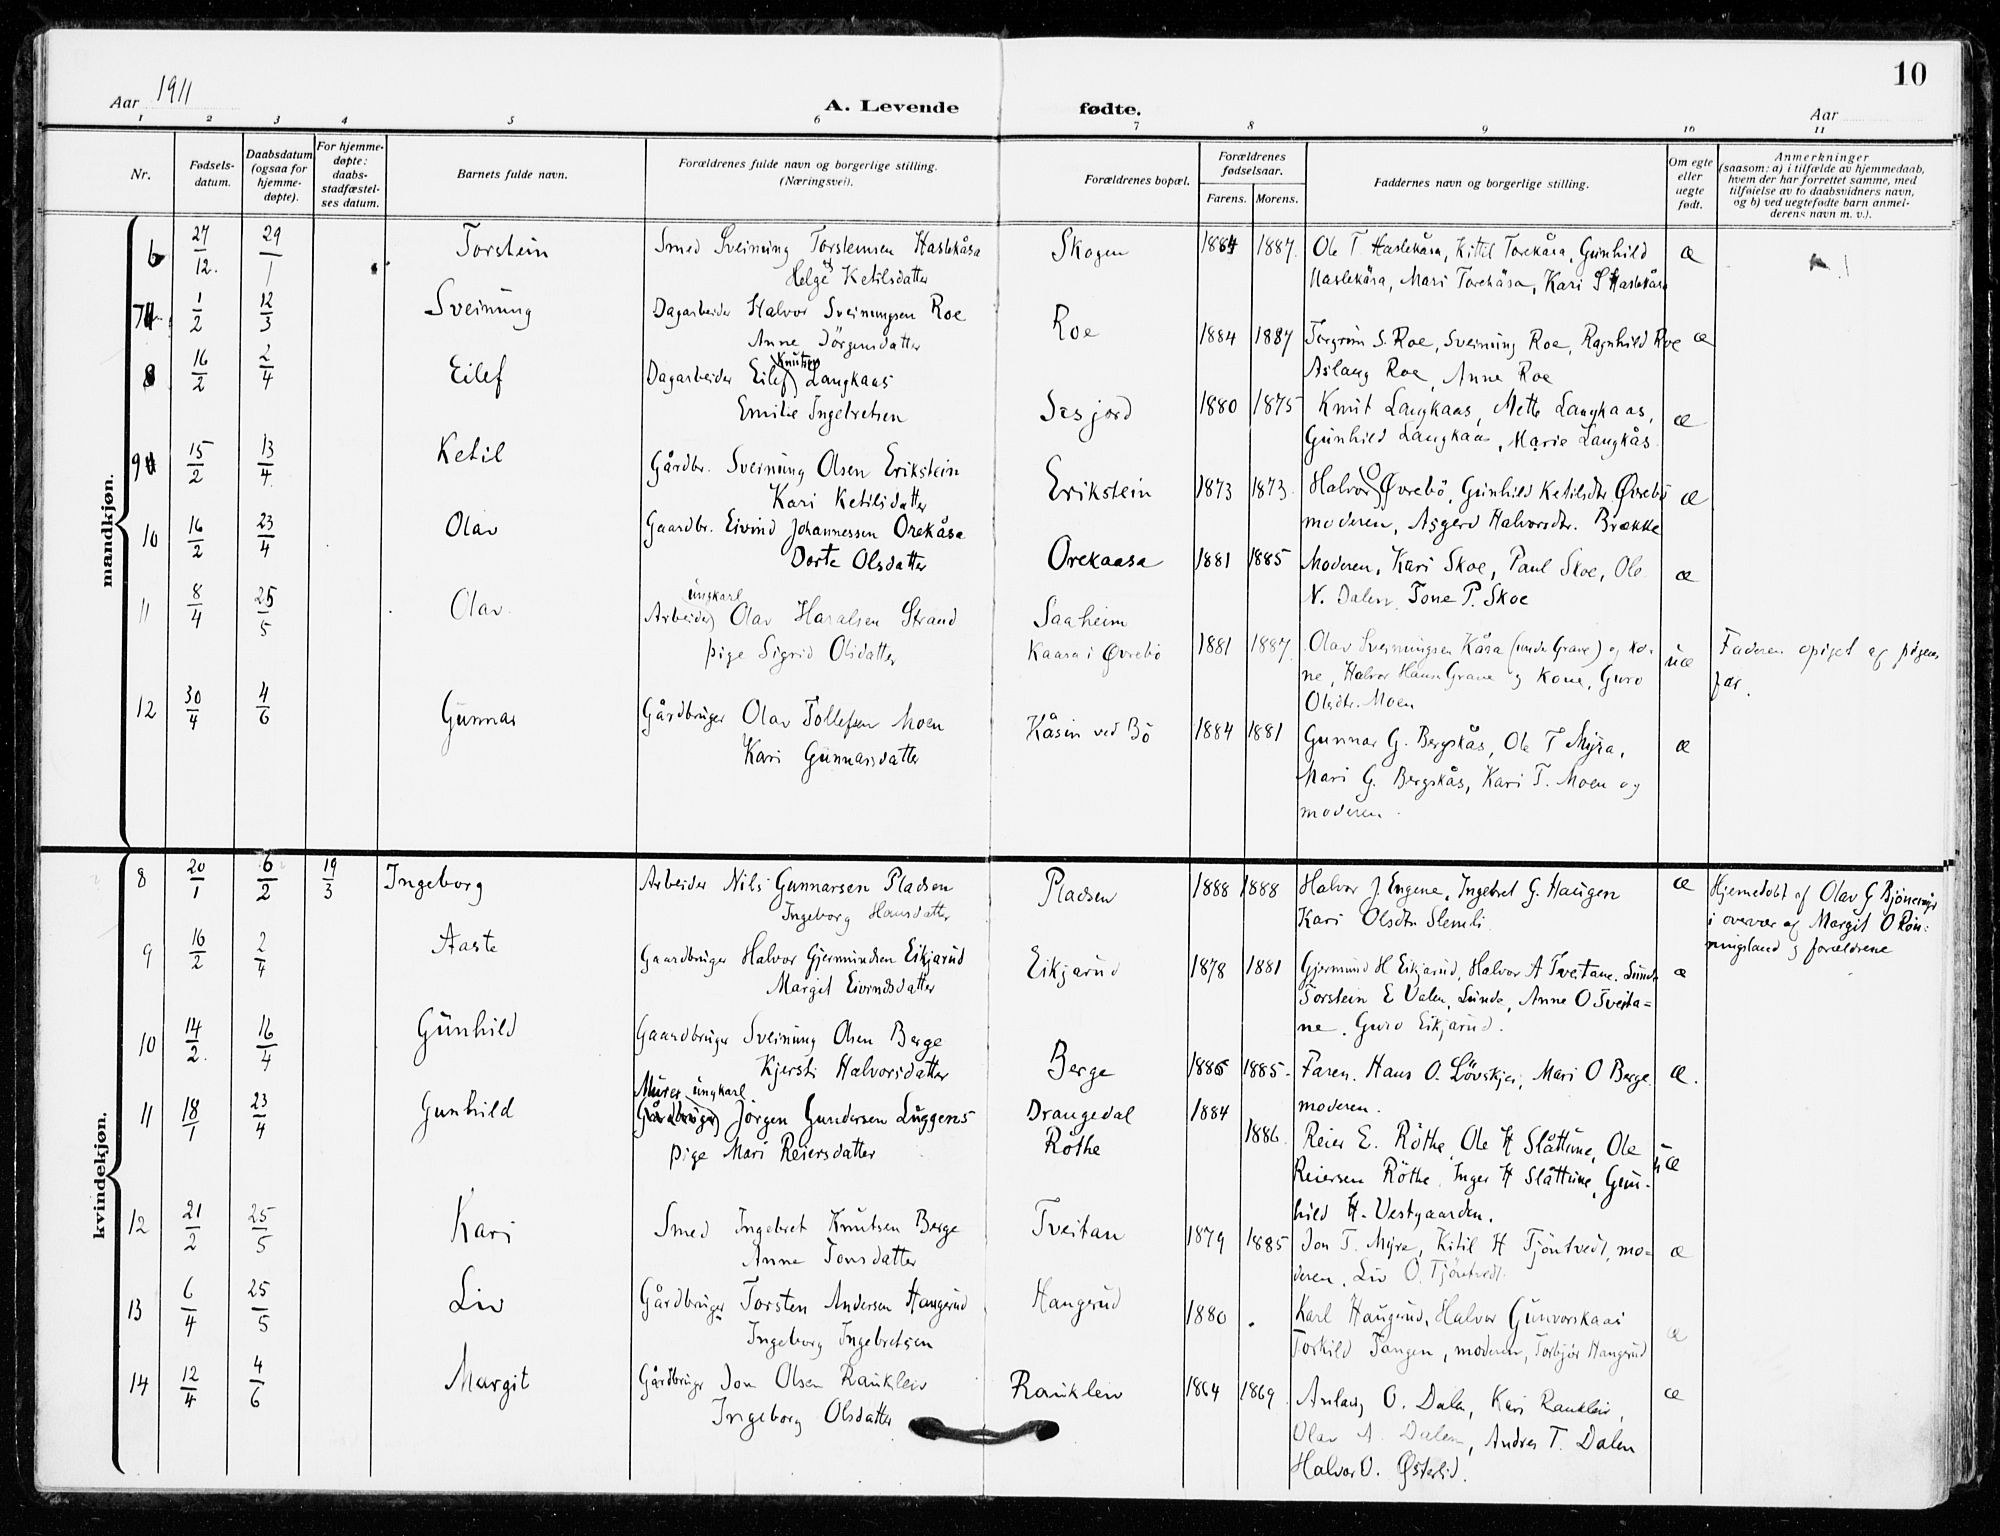 10
Aar 1911
A. Levende fødte.
Aar
1 2 3 4 5 6 7 8 9 10 11
Nr.
Fødsels-
datum.
Daabsdatum
(ogsaa for
hjemme-
døpte).
For hjemme-
døpte:
daabs-
stadfæstel-
ses datum.
Barnets fulde navn.
Forældrenes fulde navn og borgerlige stilling.
(Næringsvei).
Forældrenes bopæl.
Forældrenes
fødselsaar.
Farens. Morens.
Faddernes navn og borgerlige stilling.
Om egte
eller
uegte
født.
Anmerkninger
(saasom: a) i tilfælde av hjemmedaab,
hvem der har forrettet samme, med
tilføielse av to daabsvidners navn,
og b) ved uegtefødte barn anmel-
derens navn m. v.).
mandkjøn.
6 27/12. 29/1 Torstein Smed Sveinung Torstensen Haslekåsa Skogen 1884 1887. Ole T. Haslekåsa, Kittil Torekåsa, Gunhild æ
Helge Ketilsdatter Haslekåsa, Mari Torekåsa, Kari S Haslekåsa
7 1/2 12/3 Sveinung Dagarbeider Halvor Sveinungsen Roe Roe 1884 1887 Torgrim S. Roe, Sveinung Roe, Ragnhild Roe æ
Anne Jörgensdatter Aslaug Roe, Anne Roe
8 16/2 2/4 Eilef Dagarbeider Eilef Knutsen Langkaas Sisjord 1880 1875 Knut Langkaas, Mette Langkaas, æ
Emilie Ingebretsen Gunhild Langkaas, Marie Langkås.
9 15/2 13/4 Ketil Gårdbr. Sveinung Olsen Erikstein Erikstein 1873 1873. Halvor O Øvrebö, Gunhild Ketilsdtr Øvrebö æ
Kari Ketilsdatter moderen, Asgerd Halvorsdtr. Brække
10 16/2 23/4 Olav Gaardbr. Eivind Johannessen Orekåsa Orekaasa 1881 1885 Moderen, Kari Skoe, Paul Skoe, Ole æ
Dorte Olsdatter N. Dalen, Tone P. Skoe
11 8/4 25/5 Olav. Arbeider ungkarl Olav Haralsen Strand Saaheim 1881 1887. Olav Sveinungsen Kåsa (under Grave) og ko- uæ Faderen opiget af pigens
pige Sigrid Olsdatter Kaasa i Øvrebö ne, Halvor Hansen Grave og kone, Guro far.
Olsdtr. Moen
12 30/4 4/6 Gunnar Gårdbruger Olav Tollefsen Moen Kåsin ved Bö 1884 1881 Gunnar G. Bergskås, Ole T Myra, æ
Kari Gunnarsdatter Mari G. Bergskås, Kari T. Moen og
moderen.
kvindekjøn.
8 20/1 6/2 19/3 Ingeborg Arbeider Nils Gunnarsen Pladsen Pladsen 1888 1888 Halvor J. Engene, Ingebret G. Haugen æ Hjemedöbt af Olav G Bjönerøs
Ingeborg Hansdatter Kari Olsdtr Slemli. i overvær af Margit O Rön-
ningsland og forældrene
9 16/2 2/4 Aaste Gaardbruger Halvor Gjermundsen Eikjarud Eikjarud 1878 1881 Gjermund H Eikjarud, Halvor A Tveitane. Lunde æ
Margit Eivindsdatter Torstein E Valen, Lunde, Anne O Tveita=
ne. Guro Eikjarud.
10 14/2. 16/4 Gunhild Gaardbruger Sveinung Olsen Berge Berge 1885 1885. Faren. Hans O. Lövskjær, Mari O Berge æ.
Kjersti Halvorsdatter moderen.
11 18/1 23/4 Gunhild Murer ungkarl
Gårdbruger Jörgen Gundersen Luggenes Drangedal 1884
pige Mari Reiersdatter Röthe 1886. Reier E. Röthe, Ole H Slåttune, Ole uæ
Reiersen Röthe, Inger H Slåttune, Gun-
hild H. Vestgaarden.
12 21/2 25/5 Kari Smed Ingebret Knutsen Berge Tveitan 1879 1885 Jon T. Myra, Kitil H Tjöntvedt, mo= æ
Anne Jonsdatter deren, Liv O. Tjöntvedt.
13 6/4 25/5 Liv Gårdbruger Torsten Andersen Haugerud Haugerud 1880 Karl Haugerud, Halvor Gunvorskaas æ
Ingeborg Ingebretsen Torkild Tangen, moderen, Torbjör Haugerud
14 12/4 4/6 Margit Gårdbruger Jon Olsen Raukleiv Raukleiv 1864 1869. Anlaug O. Dalen, Kari Raukleiv, æ
Ingeborg Olsdatter Olav A. Dalen, Andres T. Dalen
Halvor O. Østerlid.